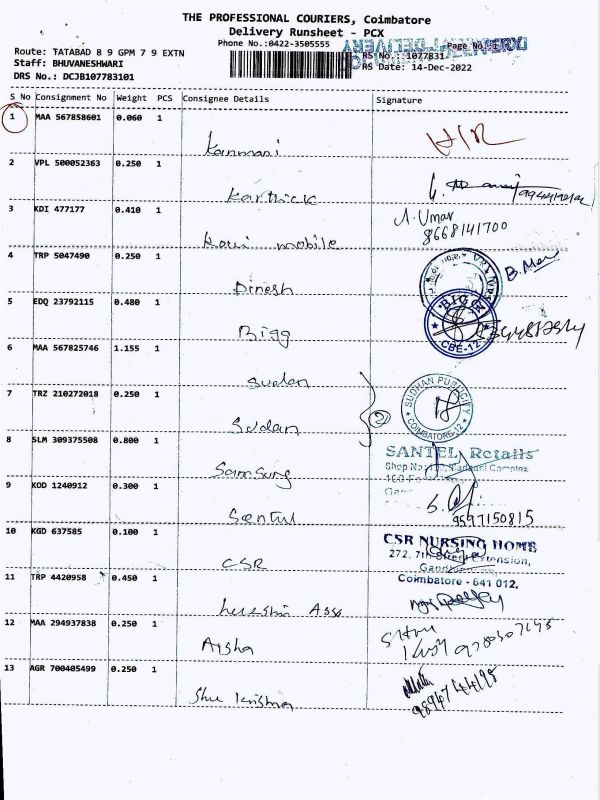 THE PROFESSIONAL COURIERS, Coimbatore
Delivery Runsheet - PCX
Phone No.:0422-3505555
Page No.:
Route: TATABAD 8 9 GPM 7 9 EXTN
RS No.: 1077831
Staff: BHUVANESHWARI
RS Date: 14-Dec-2022
DRS No.: DCJB107783101
S No Consignment No Weight PCS Consignee Details Signature
1 MAA 567858601 0.060 1
Kanmani
2 VPL 500052363 0.250 1
Karthick
3 KDI 477177 0.410 1
A. Umar
8668141700
mobile
4 TRP 5047490 0.250 1
Dinesh
5 EDQ 23792115 0.480 1
BIGG
CBE-12
Bigg
6 MAA 567825746 1.155 1
Sudan
7 TRZ 210272018 0.250 1
SUDHAN PUBLICITY
COIMBATORE-12
2
Sudan
8 SLM 309375508 0.800 1
SANTEL Retails
Shop No
Complex
Samsung
9 KOD 1240912 0.300 1
9597150815
Sentul
10 KGD 637585 0.100 1
CSR NURSING HOME
272, 7th
CSR
11 TRP 4420958 0.450 1
Coimbatore - 641 012.
Asso
12 MAA 294937838 0.250 1
Aysha
13 AGR 700405499 0.250 1
9894744198
Shri Krishna